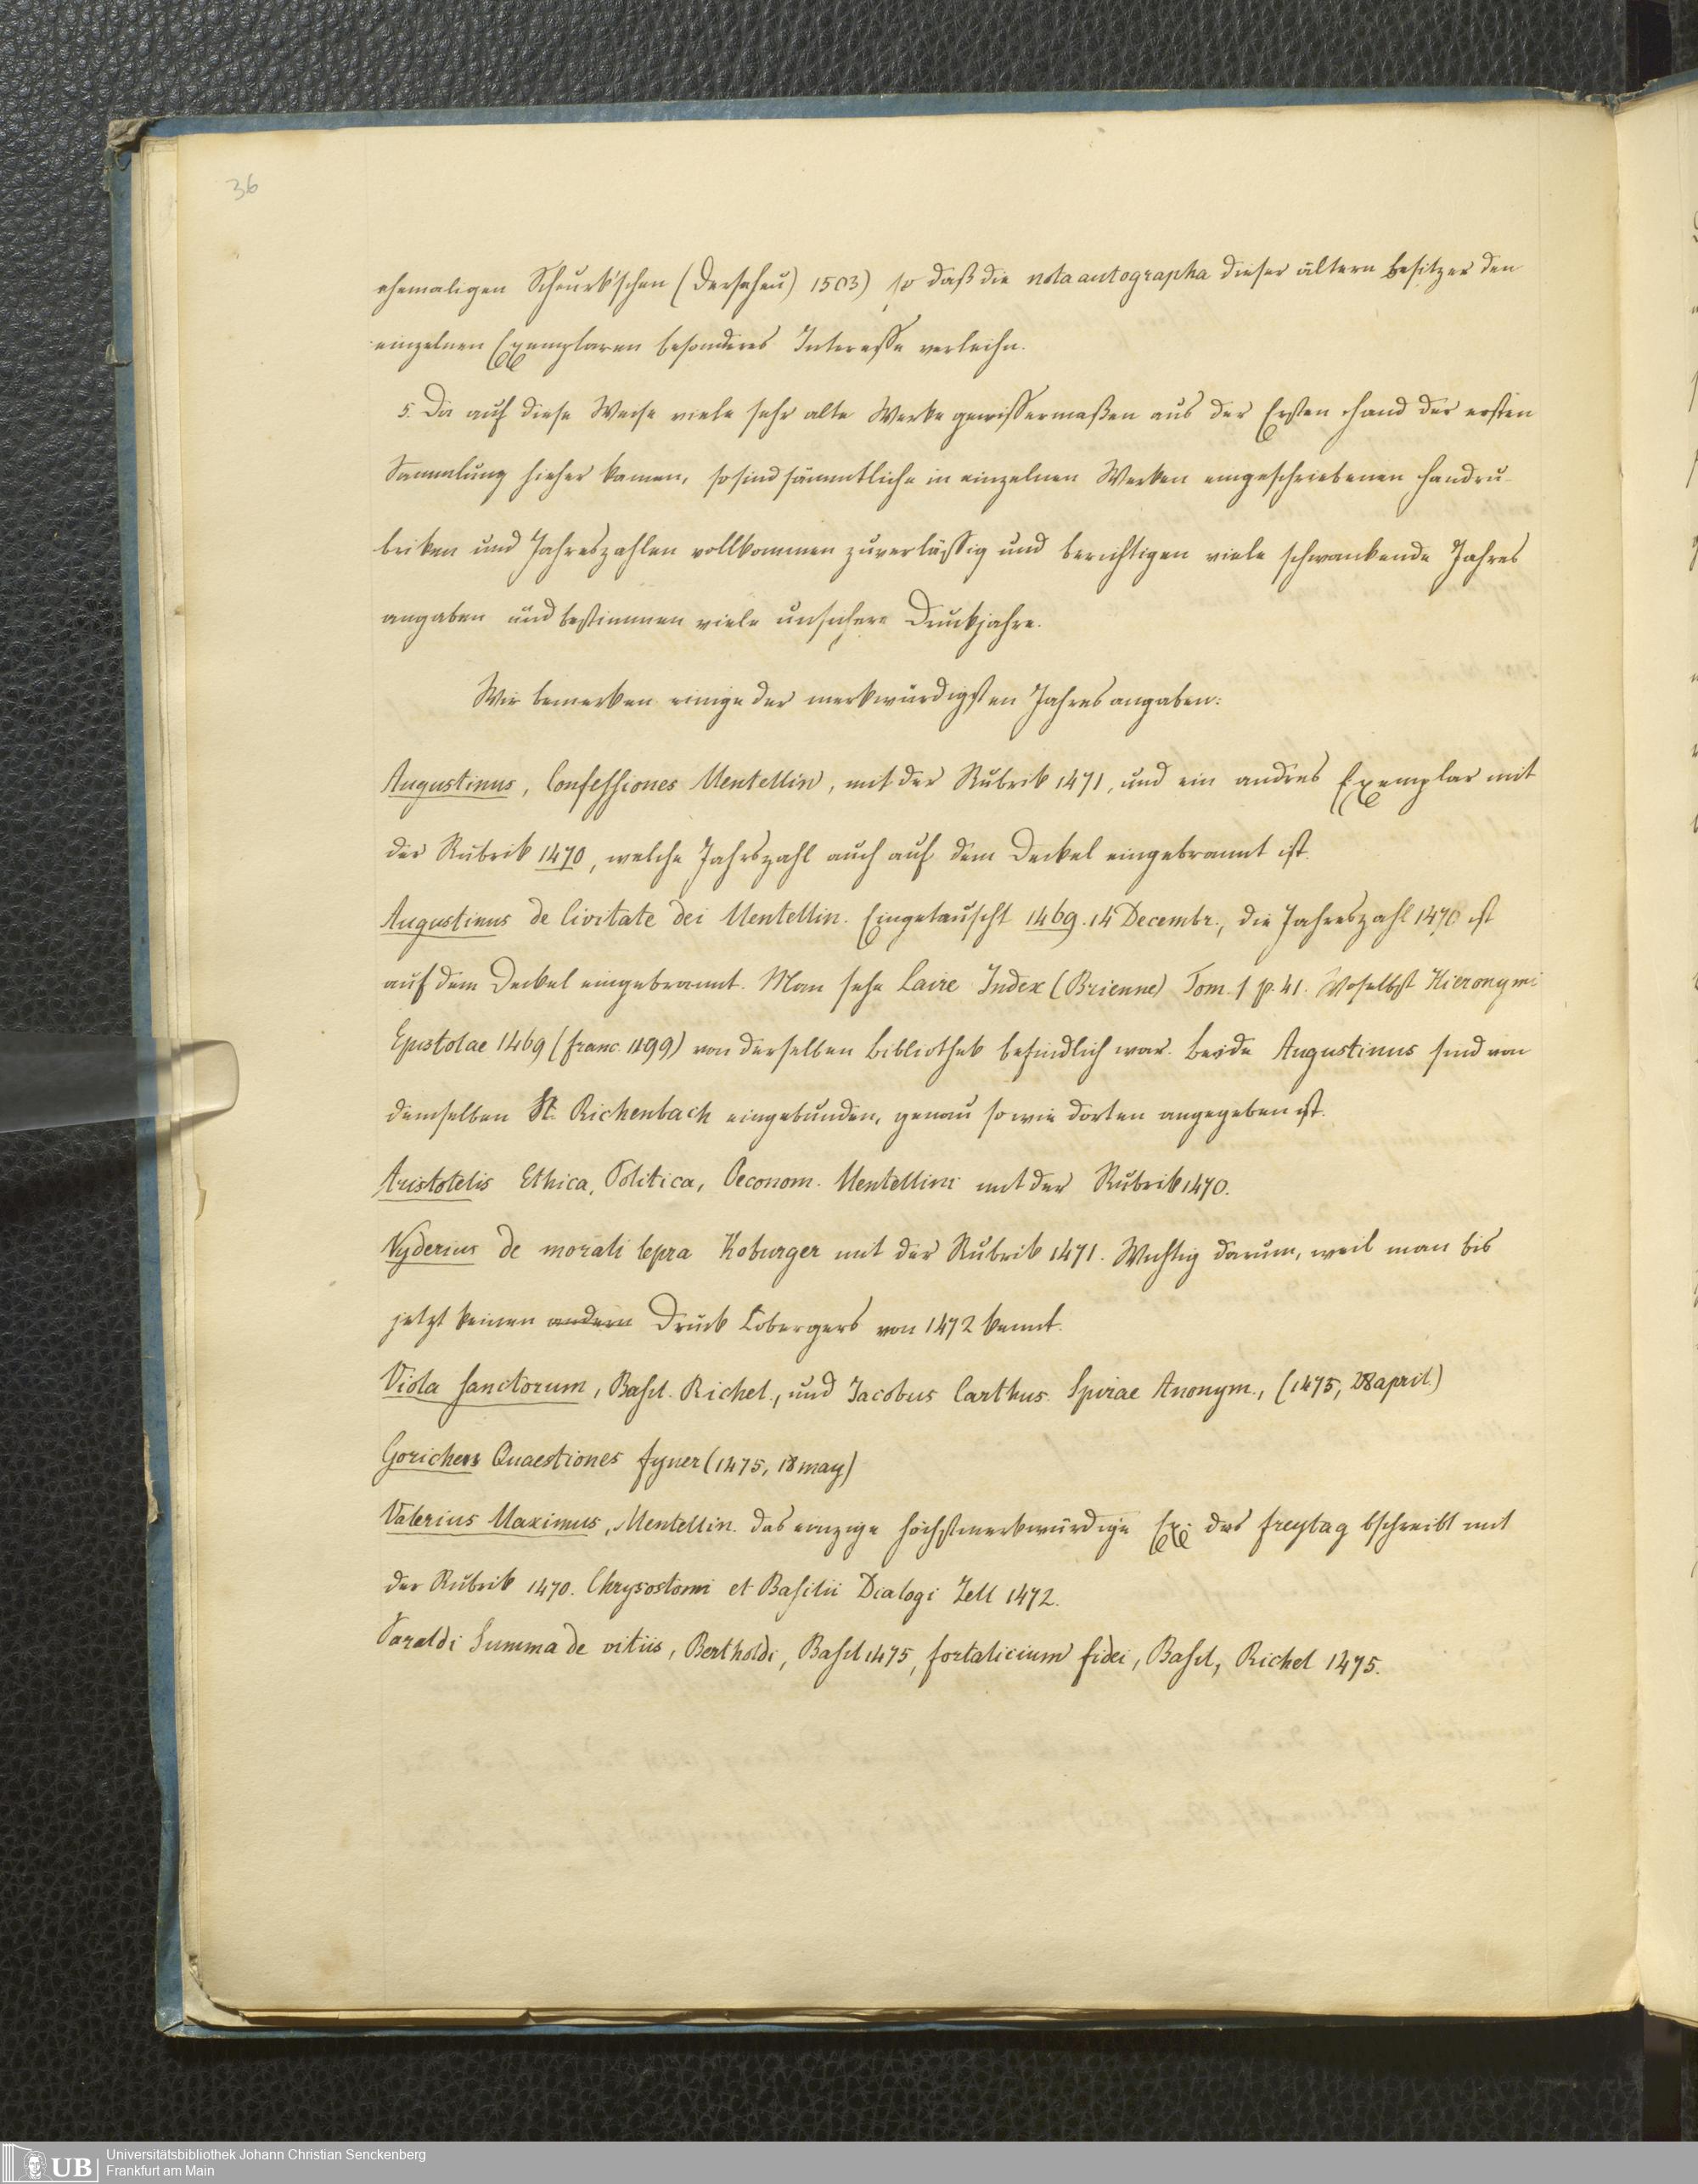 36
ehemaligen Scheurl'schen (Derscheu) 1503) so daß die nota autographa dieser ältern Besitzer den
einzelnen Exemplaren besonderes Interesse verleihn.
5. Da auf diese Weise viele sehr alte Werke gewissermaßen aus der Ersten Hand der ersten
Sammlung hieher kamen, so sind sämmtliche in einzelnen Werken eingeschriebenen Handru-
briken und Jahreszahlen vollkommen zuverlässig und berichtigen viele schwankende Jahres
angaben und bestimmen viele unsichere Druckjahre.
Wir bemerken einige der merkwürdigsten Jahresangaben:
Augustinus, Confessiones Mentellin, mit der Rubrik 1471, und ein andres Exemplar mit
der Rubrik 1470, welche Jahrszahl auch auf dem Deckel eingebrannt ist.
Augustinus de Civitate dei Mentellin. Eingetauscht 1469. 14 Decembr., die Jahreszahl 1470 ist
auf dem Deckel eingebrannt. Man sehe Laire Index (Brienne) Tom. 1 p. 41. Woselbst Hieronymi
Epistolae 1469 (franc 1199) von derselben Bibliothek befindlich war. Beide Augustinus sind von
demselben Richenbach eingebunden, genau so wie dorten angegeben ist.
Aristotelis Ethica, Politica, Oeconom. Mentellini mit der Rubrik 1470.
Nyderius de morali lepra Koburger mit der Rubrik 1471. Wichtig darum, weil man bis
jetzt keinen andern Druck Kobergers von 1472 kennt.
Viola Sanctorum, Basel. Richel., und Jacobus Carthus. Spirae Anonym., (1475, 28 april.)
Gorichen Quaestiones fyner (1475, 18 may)
Valerius Maximus, Mentellin. das einzige höchstmerkwürdige Ex: das freytag bschreibt mit
der Rubrik 1470. Chrysostomi et Basilii Dialogi Zell 1472.
Paraldi Summa de vitiis, Bertholdi, Basel 1475, fortalicium fidei, Basel, Richel 1475.
UB
Universitätsbibliothek Johann Christian Senckenberg
Frankfurt am Main